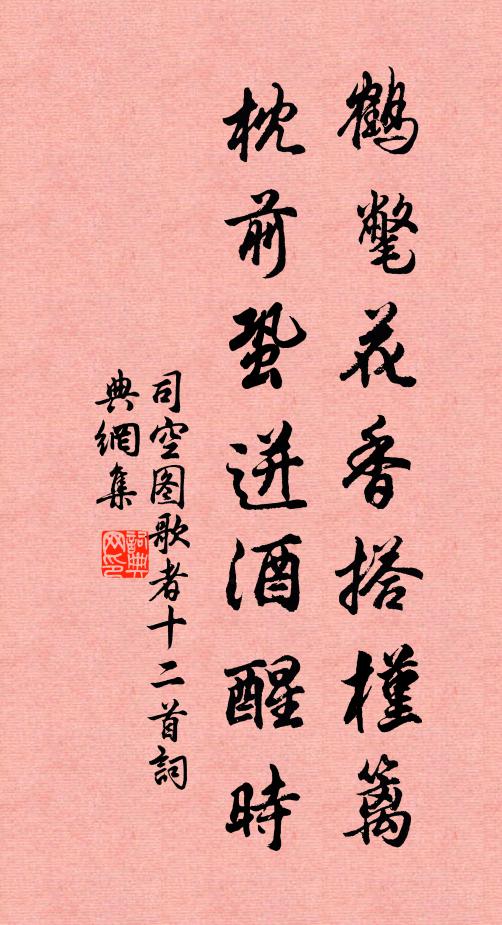 鶴氅花香搭槿籬
枕前蛩迸酒醒時
司空图歌者十二首詞
典網集
詞典网印